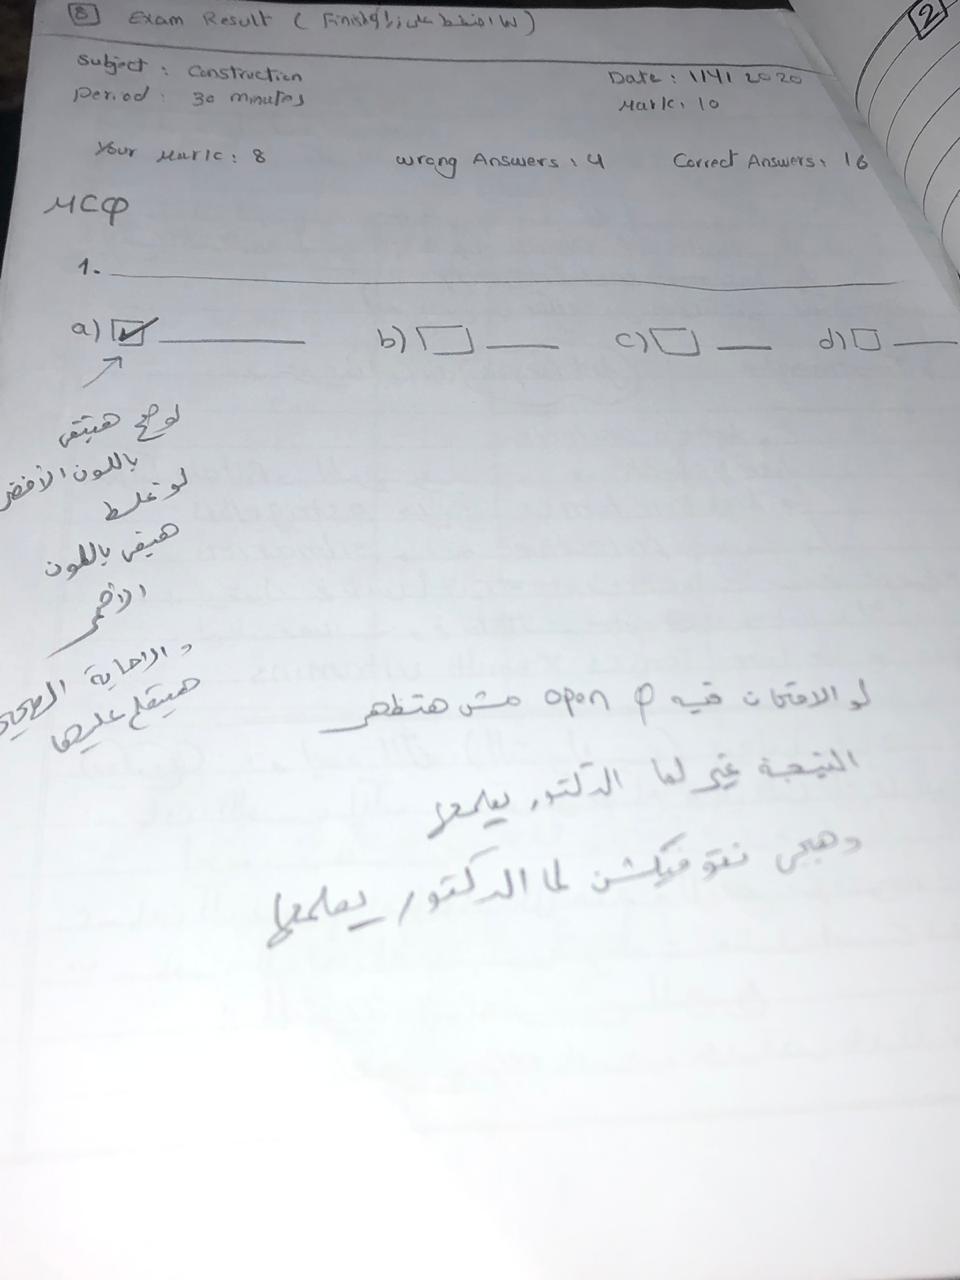 8 Exam Result ( لما اضغط على زرار Finish )
2
Subject : Construction
Date : 1/4/2020
Period : 30 minutes
Mark : 10
Your Mark : 8
Wrong Answers : 4
Correct Answers : 16
MCQ
1.
a) b) c) d)
لو صح هيبقى
باللون الأخضر
لو غلط
هيبقى باللون
الأحمر
و الاجابة الصحيحة
هيتعلم عليها
لو الامتحان فيه open Q مش هتظهر
النتيجة غير لما الدكتور يعلمها
وهيجي نوتوفيكيشن لما الدكتور يعلمها